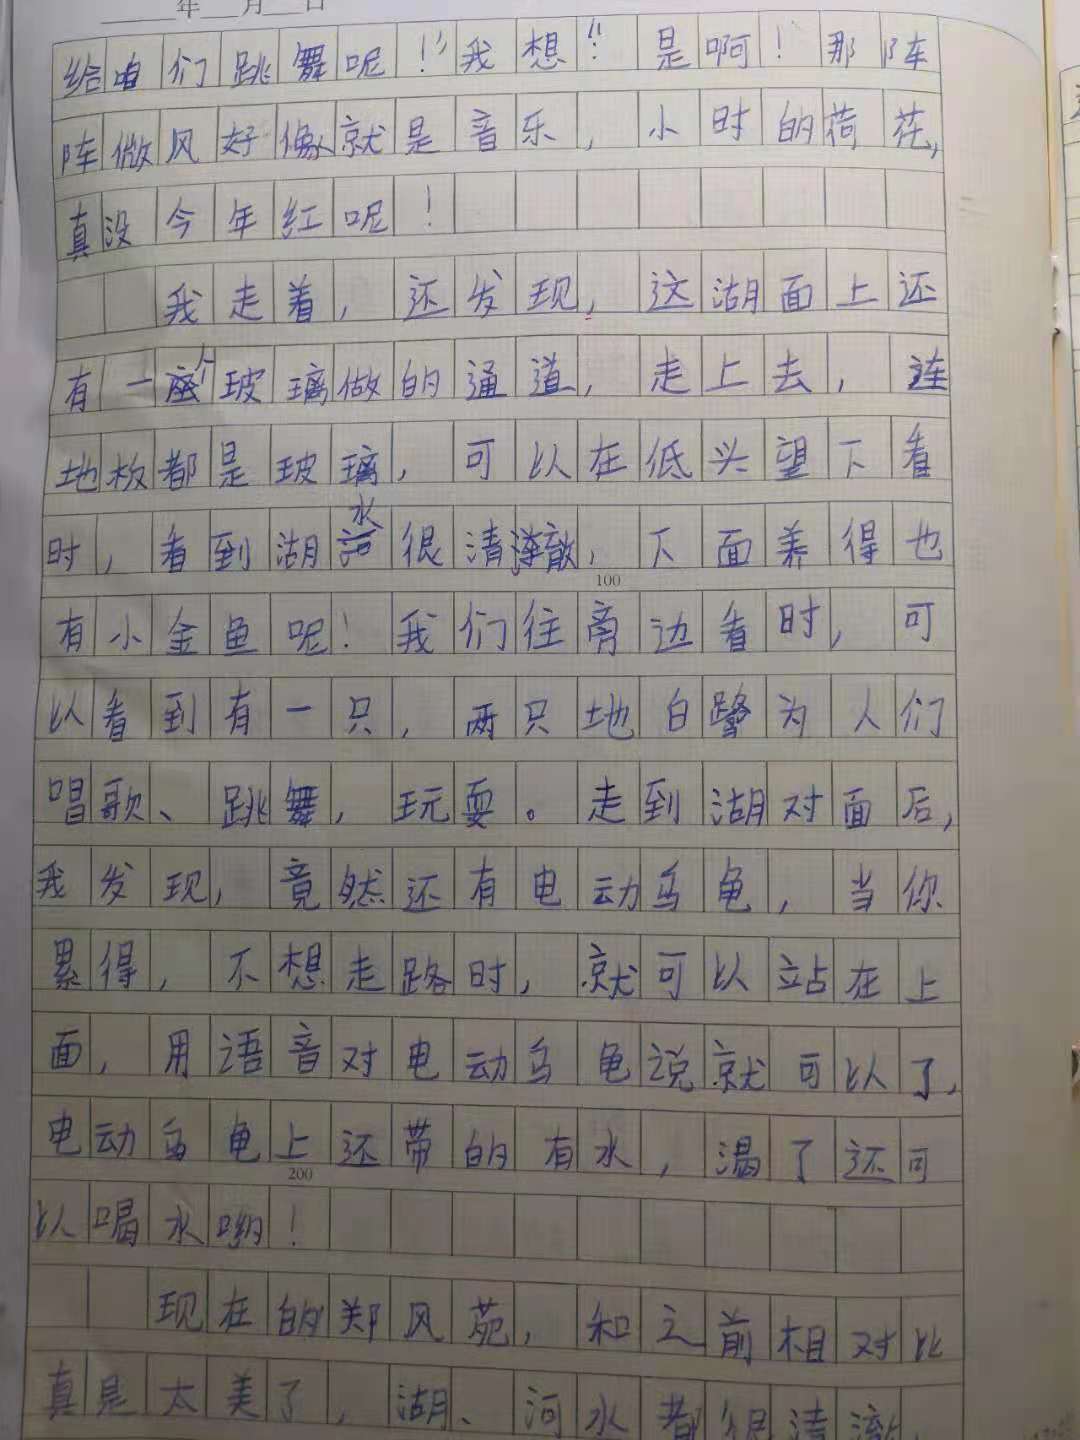 年 月 日
给咱们跳舞呢！”我想“是啊！那阵
阵微风好像就是音乐，小时的荷花，
真没今年红呢！
我走着，还发现，这湖面上还
有一座个玻璃做的通道，走上去，连
地板都是玻璃，可以在低头望下看
时，看到湖水很清澈，下面养得也
100
有小金鱼呢！我们往旁边看时，可
以看到有一只，两只地白鹭为人们
唱歌、跳舞，玩耍。走到湖对面后，
我发现，竟然还有电动乌龟，当你
累得，不想走路时，就可以站在上
面，用语音对电动乌龟说就可以了，
电动乌龟上还带的有水，渴了还可
200
以喝水哟！
现在的郑风苑，和之前相对比
真是太美了，湖、河水都很清澈，